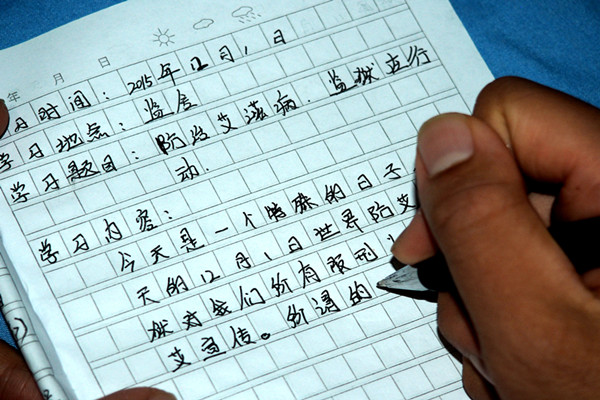 年 月 日
习时间：2015年12月1日
学习地点：监舍
学习题目：防治艾滋病.监狱在行
动.
学习内容：
今天是一个特殊的日子
天的12月1日世界防艾
狱对我们所有服刑
艾宣传。所谓的